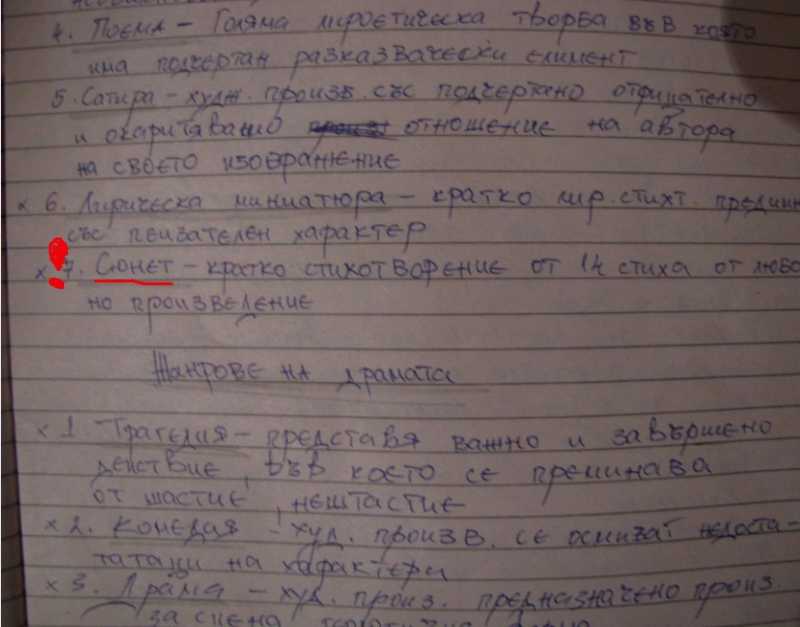 4. Поема - Голяма лироепическа творба във която
има подчертан разказвачески елимент
5. Сатира - худж. произв. със подчертано отрицателно
и окаритавано отношение на автора
на своето изображение
x 6. Лирическа миниатюра - кратко лир. стихт. предимн
със пеизателен характер
x 7. Сонет - кратко стихотворение от 14 стиха от любо
но произведение
Жанрове на драмата
x 1. Трагедия - представя важно и завършено
действие, във което се преминава
от шастие, нештастие
x 2. Комедая - худ. произв. се осмизат недоста-
татаци на характери
x 3. Драма - худ. произ. предназначено произ.
за сцена